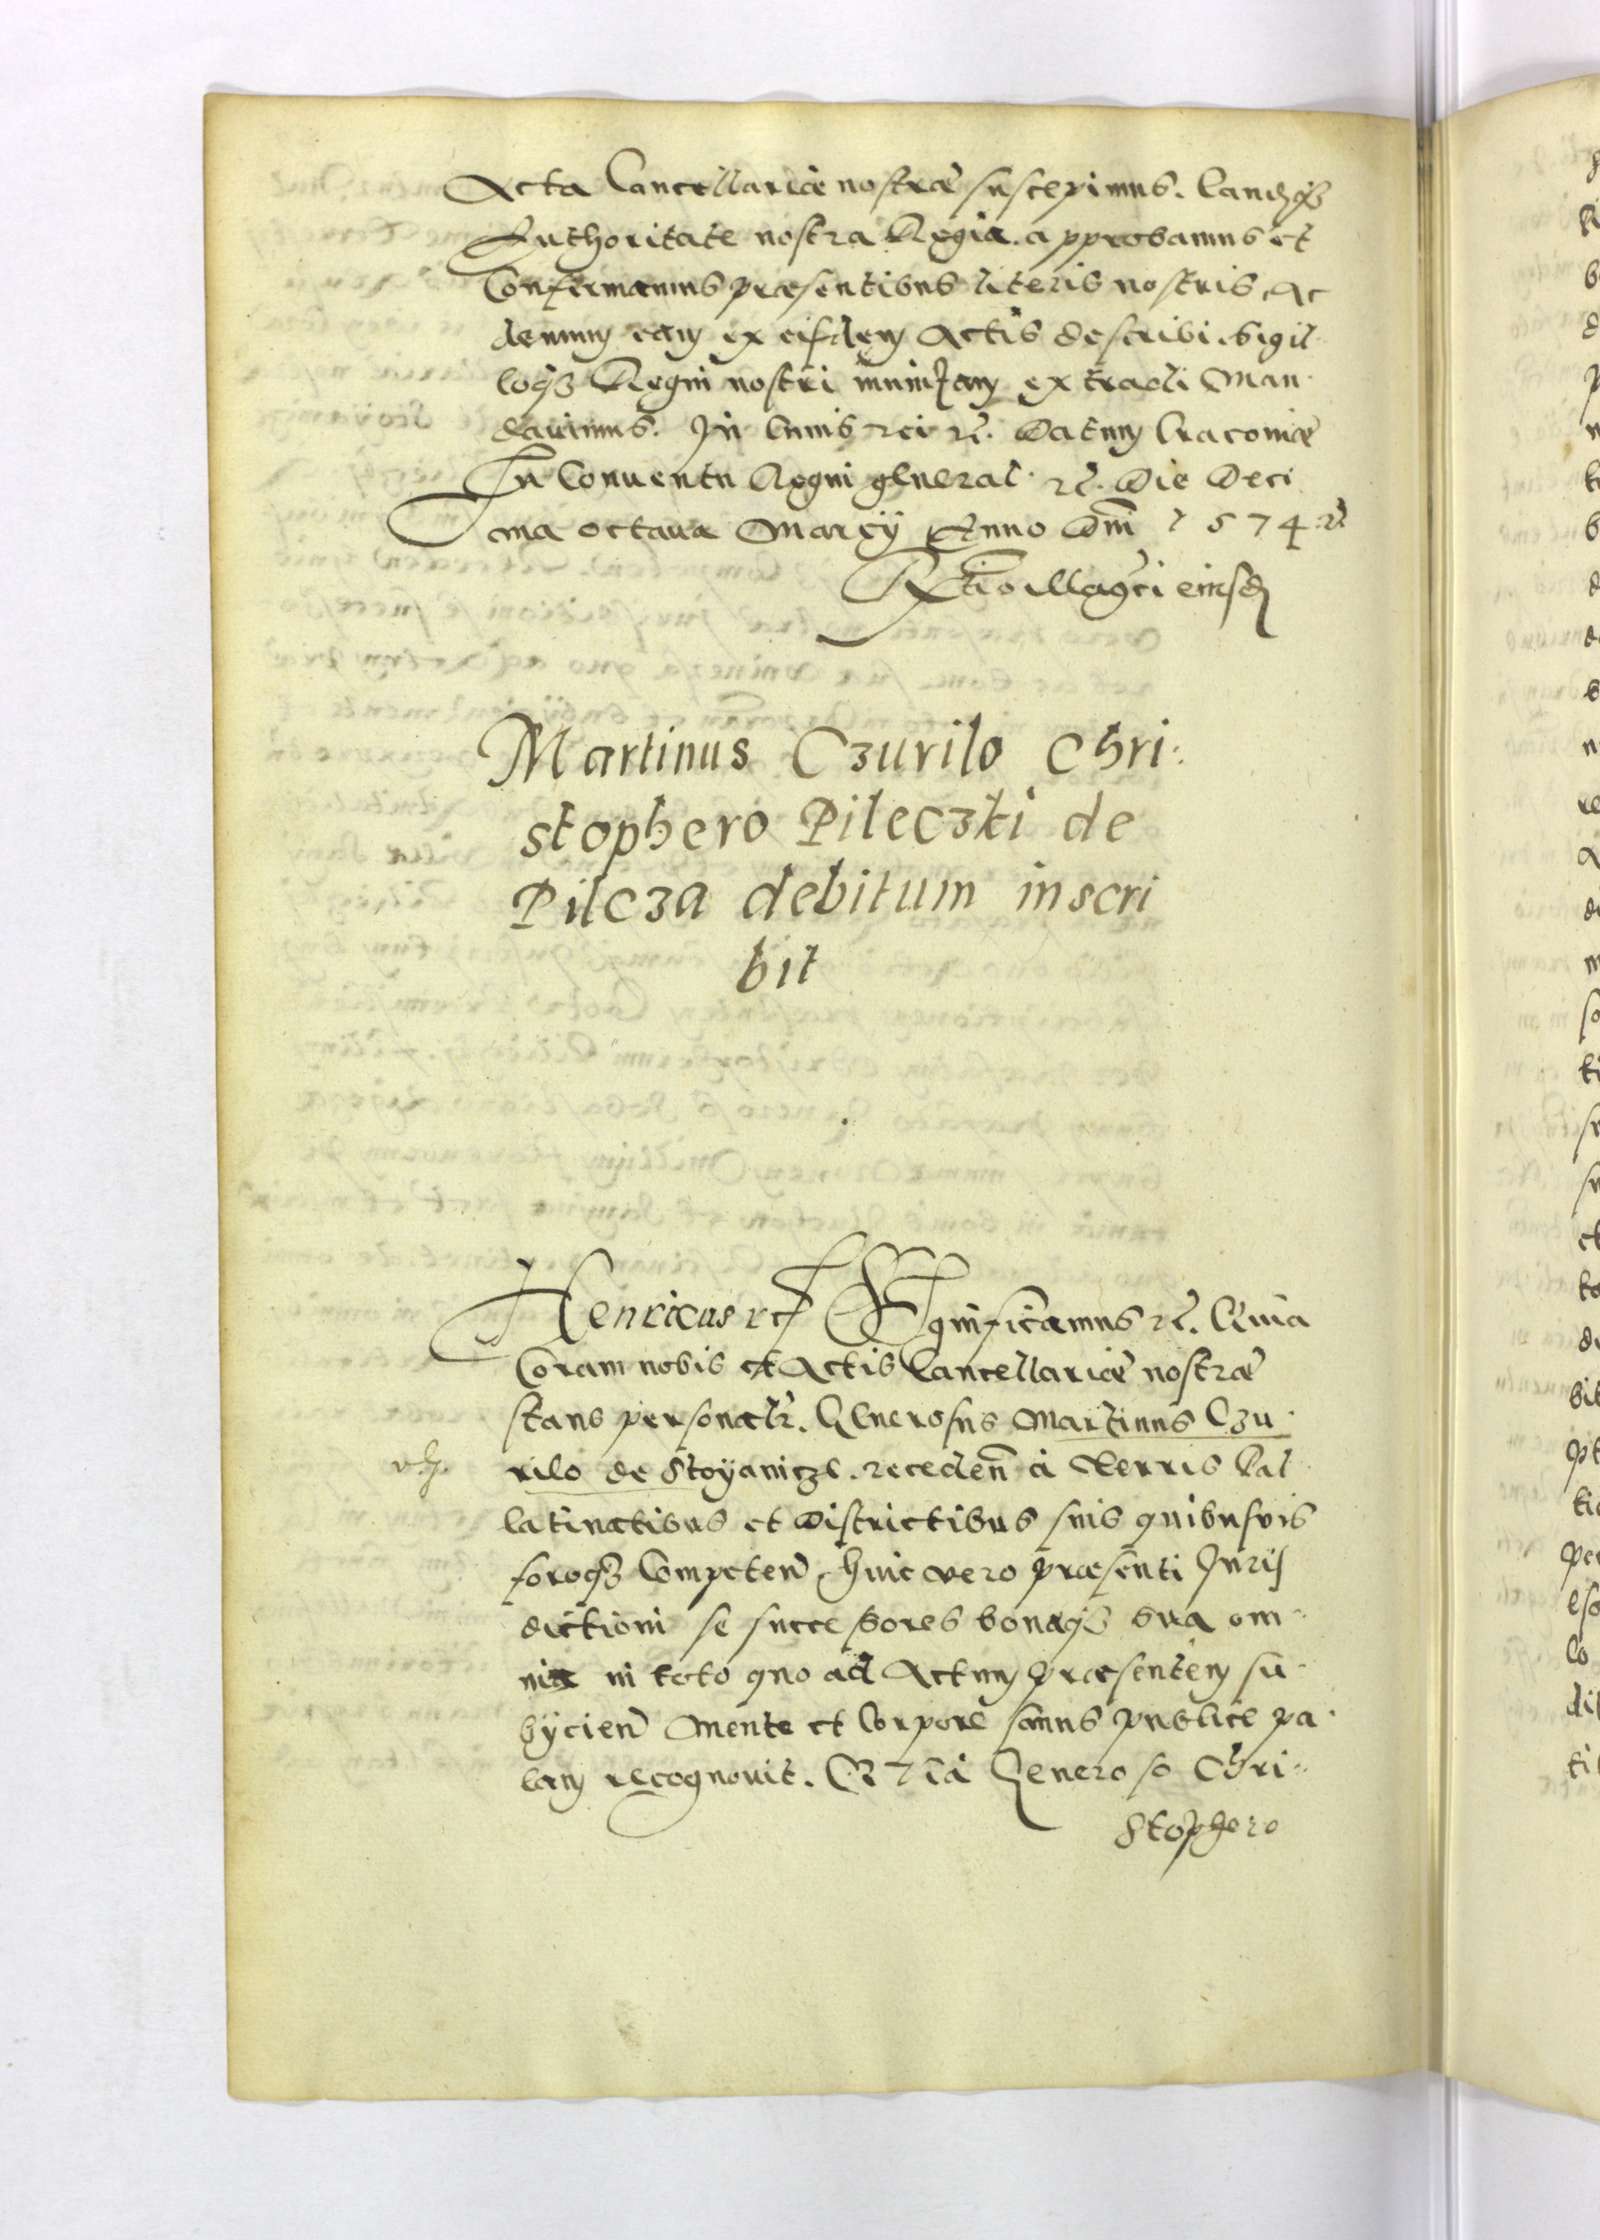 Acta Cancellariae nostrae suscepimus. Eandq3
Authoritate nostra Regia. approbamus et
Confirmamus praesentibus literis nostris, Ac
demum eam ex eisdem Actis describi. Sigil
loq3 Regni nostri munitam extradi Man
davimus. In Cuius rei etc. Datum Cracoviae
In Conventu Regni general. etc. Die Deci
ma octava Marcij Anno Dni 1574. etc.
Rtio Magci eiusd
Martinus Czurilo Chri:
stophero Pileczki de
Pilcza debitum inscri
bit
Henricus etc. Significamus etc. Quia
Coram nobis et Actis Cancellariae nostrae
stans personalr. Generosus Martinus Czu
rilo de Stoyanicze. receden a Terris Pal
latinatibus et Districtibus suis quibusvis
foroq3 Competen huic vero praesenti Juris
dictioni se successores bonaq3 sua om
nia in toto quo ad Actum praesentem su
bycien Mente et Corpore sanus publice pa
lam recognovit. Generoso Chri:
stophero